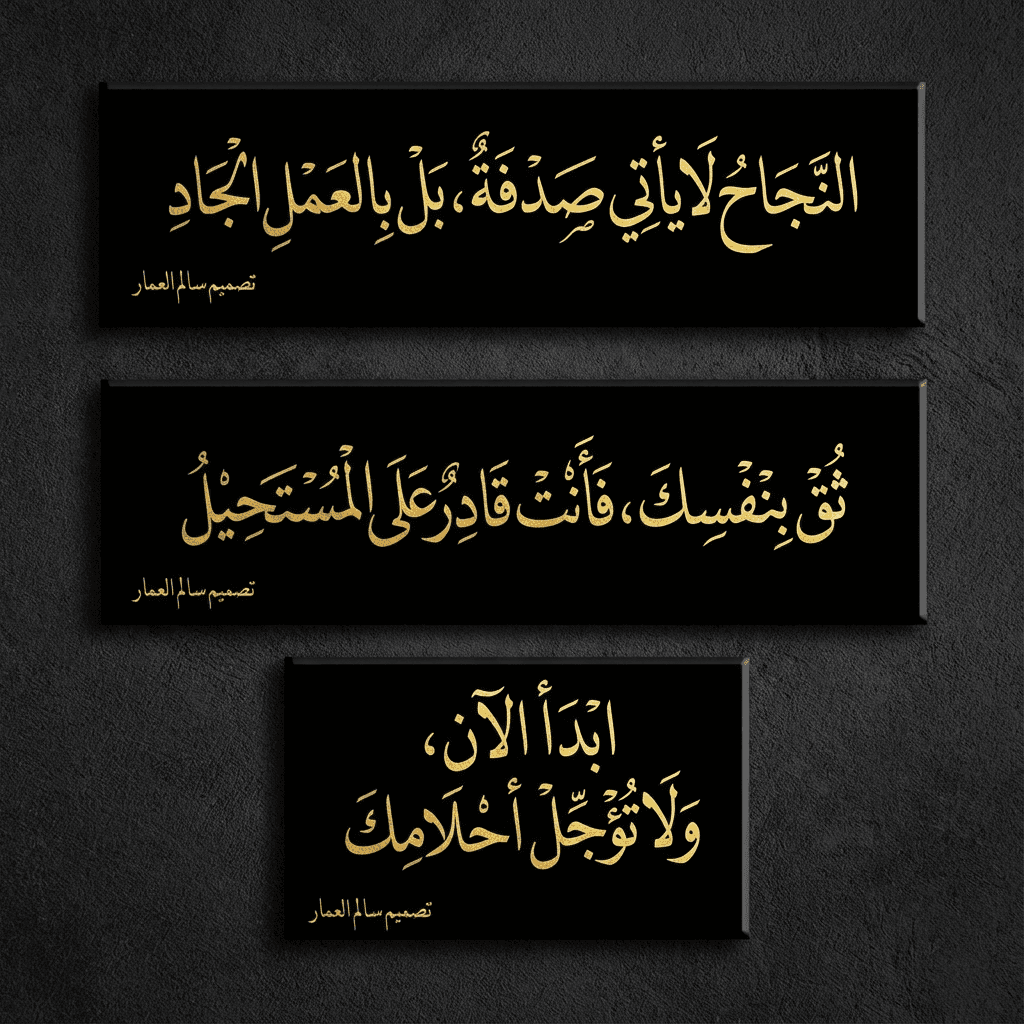 النَّجَاحُ لَا يأْتِي صَدْفَةٌ، بَلْ بِالعَمْلِ الْجَادِ
تصميم سالم العمار
ثُقْ بِنْفْسِكَ، فَأَنْتْ قَادِرٌ عَلَى الْمُسْتَحِيْلُ
تصميم سالم العمار
ابْدَأ الآن،
وَلَا تُؤْجِّلْ أحْلَامِكَ
تصميم سالم العمار